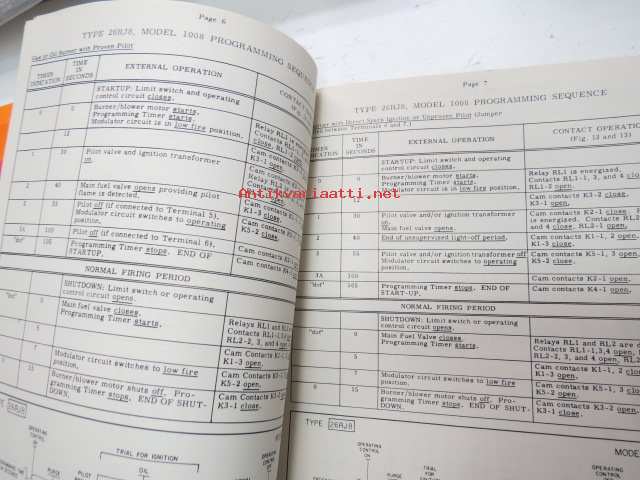 Page 6
TYPE 26RJ8, MODEL 1008 PROGRAMMING SEQUENCE
Gas or Oil Burner with Proven Pilot
TIMER INDICATION
TIME IN SECONDS
EXTERNAL OPERATION
STARTUP: Limit switch and operating
control circuit closes.
0
0
Burner/blower motor starts.
Programming Timer starts.
Modulator circuit is in low fire position.
Relay RL1
Contacts RL1
RL1-2
12
Cam contacts
K3-1
1
30
Pilot valve and ignition transformer
on.
2
40
Main fuel valve opens providing pilot
flame is detected.
Cam contacts
K1-3 close.
3
55
Pilot off (if connected to Terminal 5).
Modulator circuit switches to operating
position.
Cam contacts
K5-2 close.
3A
100
Pilot off (if connected to Terminal 6).
"dot"
105
Programming Timer stops. END OF
STARTUP.
Cam contacts K4
NORMAL FIRING PERIOD
SHUTDOWN: Limit switch or operating
control circuit opens.
"dot"
0
Main fuel valve closes.
Programming Timer starts.
Relays RL1 and RL2
Contacts RL1-1,3,4
RL2-2, 3, and 4 open
5
Cam Contacts K1-1,
K1-3 open.
7
Modulator circuit switches to low fire
position.
Cam Contacts K5-1
K5-2 open.
15
Burner/blower motor shuts off. Pro-
gramming Timer stops. END OF SHUT-
DOWN.
Cam contacts K3-2
K3-1 close.
TYPE 26RJ8
OPERATING CONTROL ON
PURGE
PILOT
TRIAL FOR IGNITION
OIL
OPERATING CONTROL
antiikvariaatti.net
Page 7
TYPE 26RJ8, MODEL 1008 PROGRAMMING SEQUENCE
with Direct Spark Ignition or Unproven Pilot (Jumper
between Terminals 6 and 7.)
TIME IN SECONDS
EXTERNAL OPERATION
CONTACT OPERATION
(Fig. 12 and 13)
STARTUP: Limit switch and operating
control circuit closes.
0
0
Burner/blower motor starts.
Programming Timer starts.
Modulator circuit is in low fire position.
Relay RL1 is energized.
Contacts RL1-1, 3, and 4 close,
RL1-2 open.
12
Cam contacts K3-2 close.
K3-1 open.
1
30
Pilot valve and/or ignition transformer
on.
Main fuel valve opens.
Cam contacts K2-1 close.
is energized. Contacts RL2
and 4 close, RL2-1 open.
2
40
End of unsupervised light-off period.
Cam contacts K1-1, 2 open,
K1-3 close.
3
55
Pilot valve and/or ignition transformer off
Modulator circuit switches to operating
position.
Cam contacts K5-1, 3 open,
K5-2 close.
3A
100
Cam contacts K2-1 open.
"dot"
105
Programming Timer stops. END OF
START-UP.
Cam contacts K4-1 open.
NORMAL FIRING PERIOD
SHUTDOWN: Limit switch or operating
control circuit opens.
"dot"
0
Main Fuel Valve closes.
Programming Timer starts.
Relays RL1 and RL2 are
Contacts RL1-1,3,4 open,
RL2-2, 3, and 4 open, RL2
5
Cam contacts K1-1, 2 close
K1-3 open.
7
Modulator circuit switches to low fire
position.
Cam contacts K5-1, 3 close
K5-2 open.
0
15
Burner/blower motor shuts off. Pro-
gramming Timer stops. END OF SHUT-
DOWN.
Cam contacts K3-2 open,
K3-1 close.
TYPE 26RJ8
MODE
OPERATING CONTROL ON
PURGE
TRIAL FOR
OPERATING CONTROL